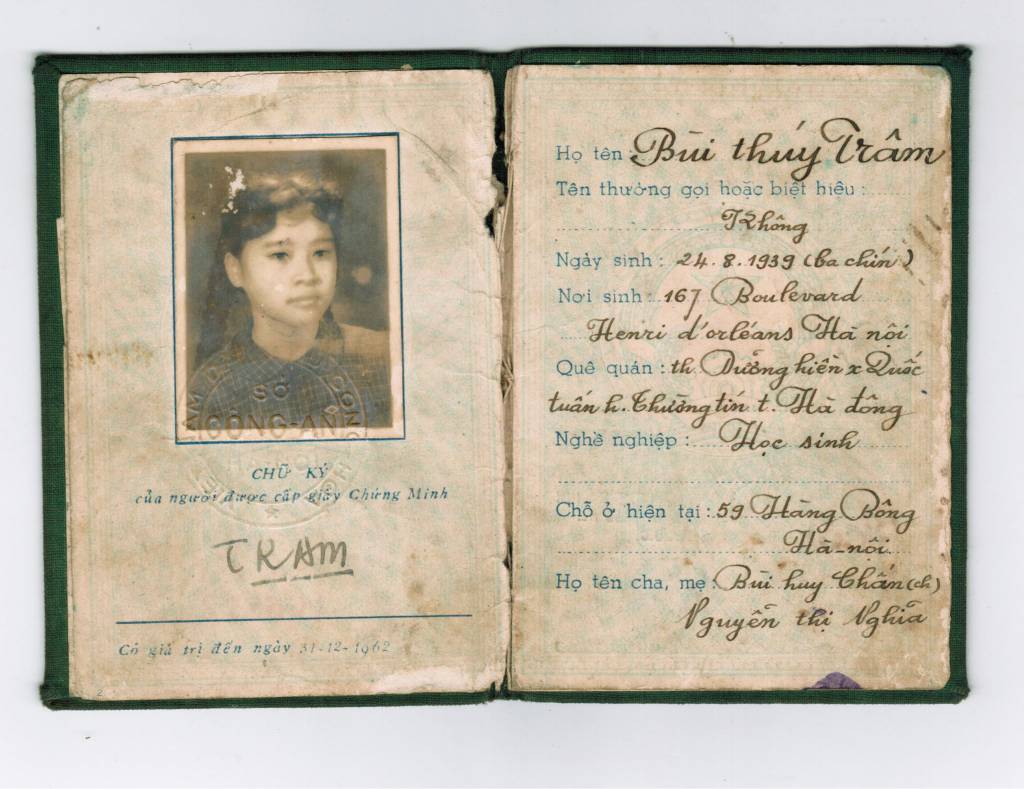 SỞ
CÔNG-AN
CHỮ KÝ
của người được cấp giấy Chứng Minh
TRAM
Có giá trị đến ngày 31-12-1962
Họ tên: Bùi thúy Trâm
Tên thường gọi hoặc biệt hiệu:
Không
Ngày sinh: 24.8.1939 (ba chín)
Nơi sinh: 167 Boulevard
Henri d'orléans Hà nội
Quê quán: th. Dưỡng hiền x Quốc
tuấn h. Thường tín t. Hà đông
Nghề nghiệp: Học sinh
Chỗ ở hiện tại: 59 Hàng Bông
Hà-nội
Họ tên cha, mẹ: Bùi huy Chẩn (ch)
Nguyễn thị Nghĩa